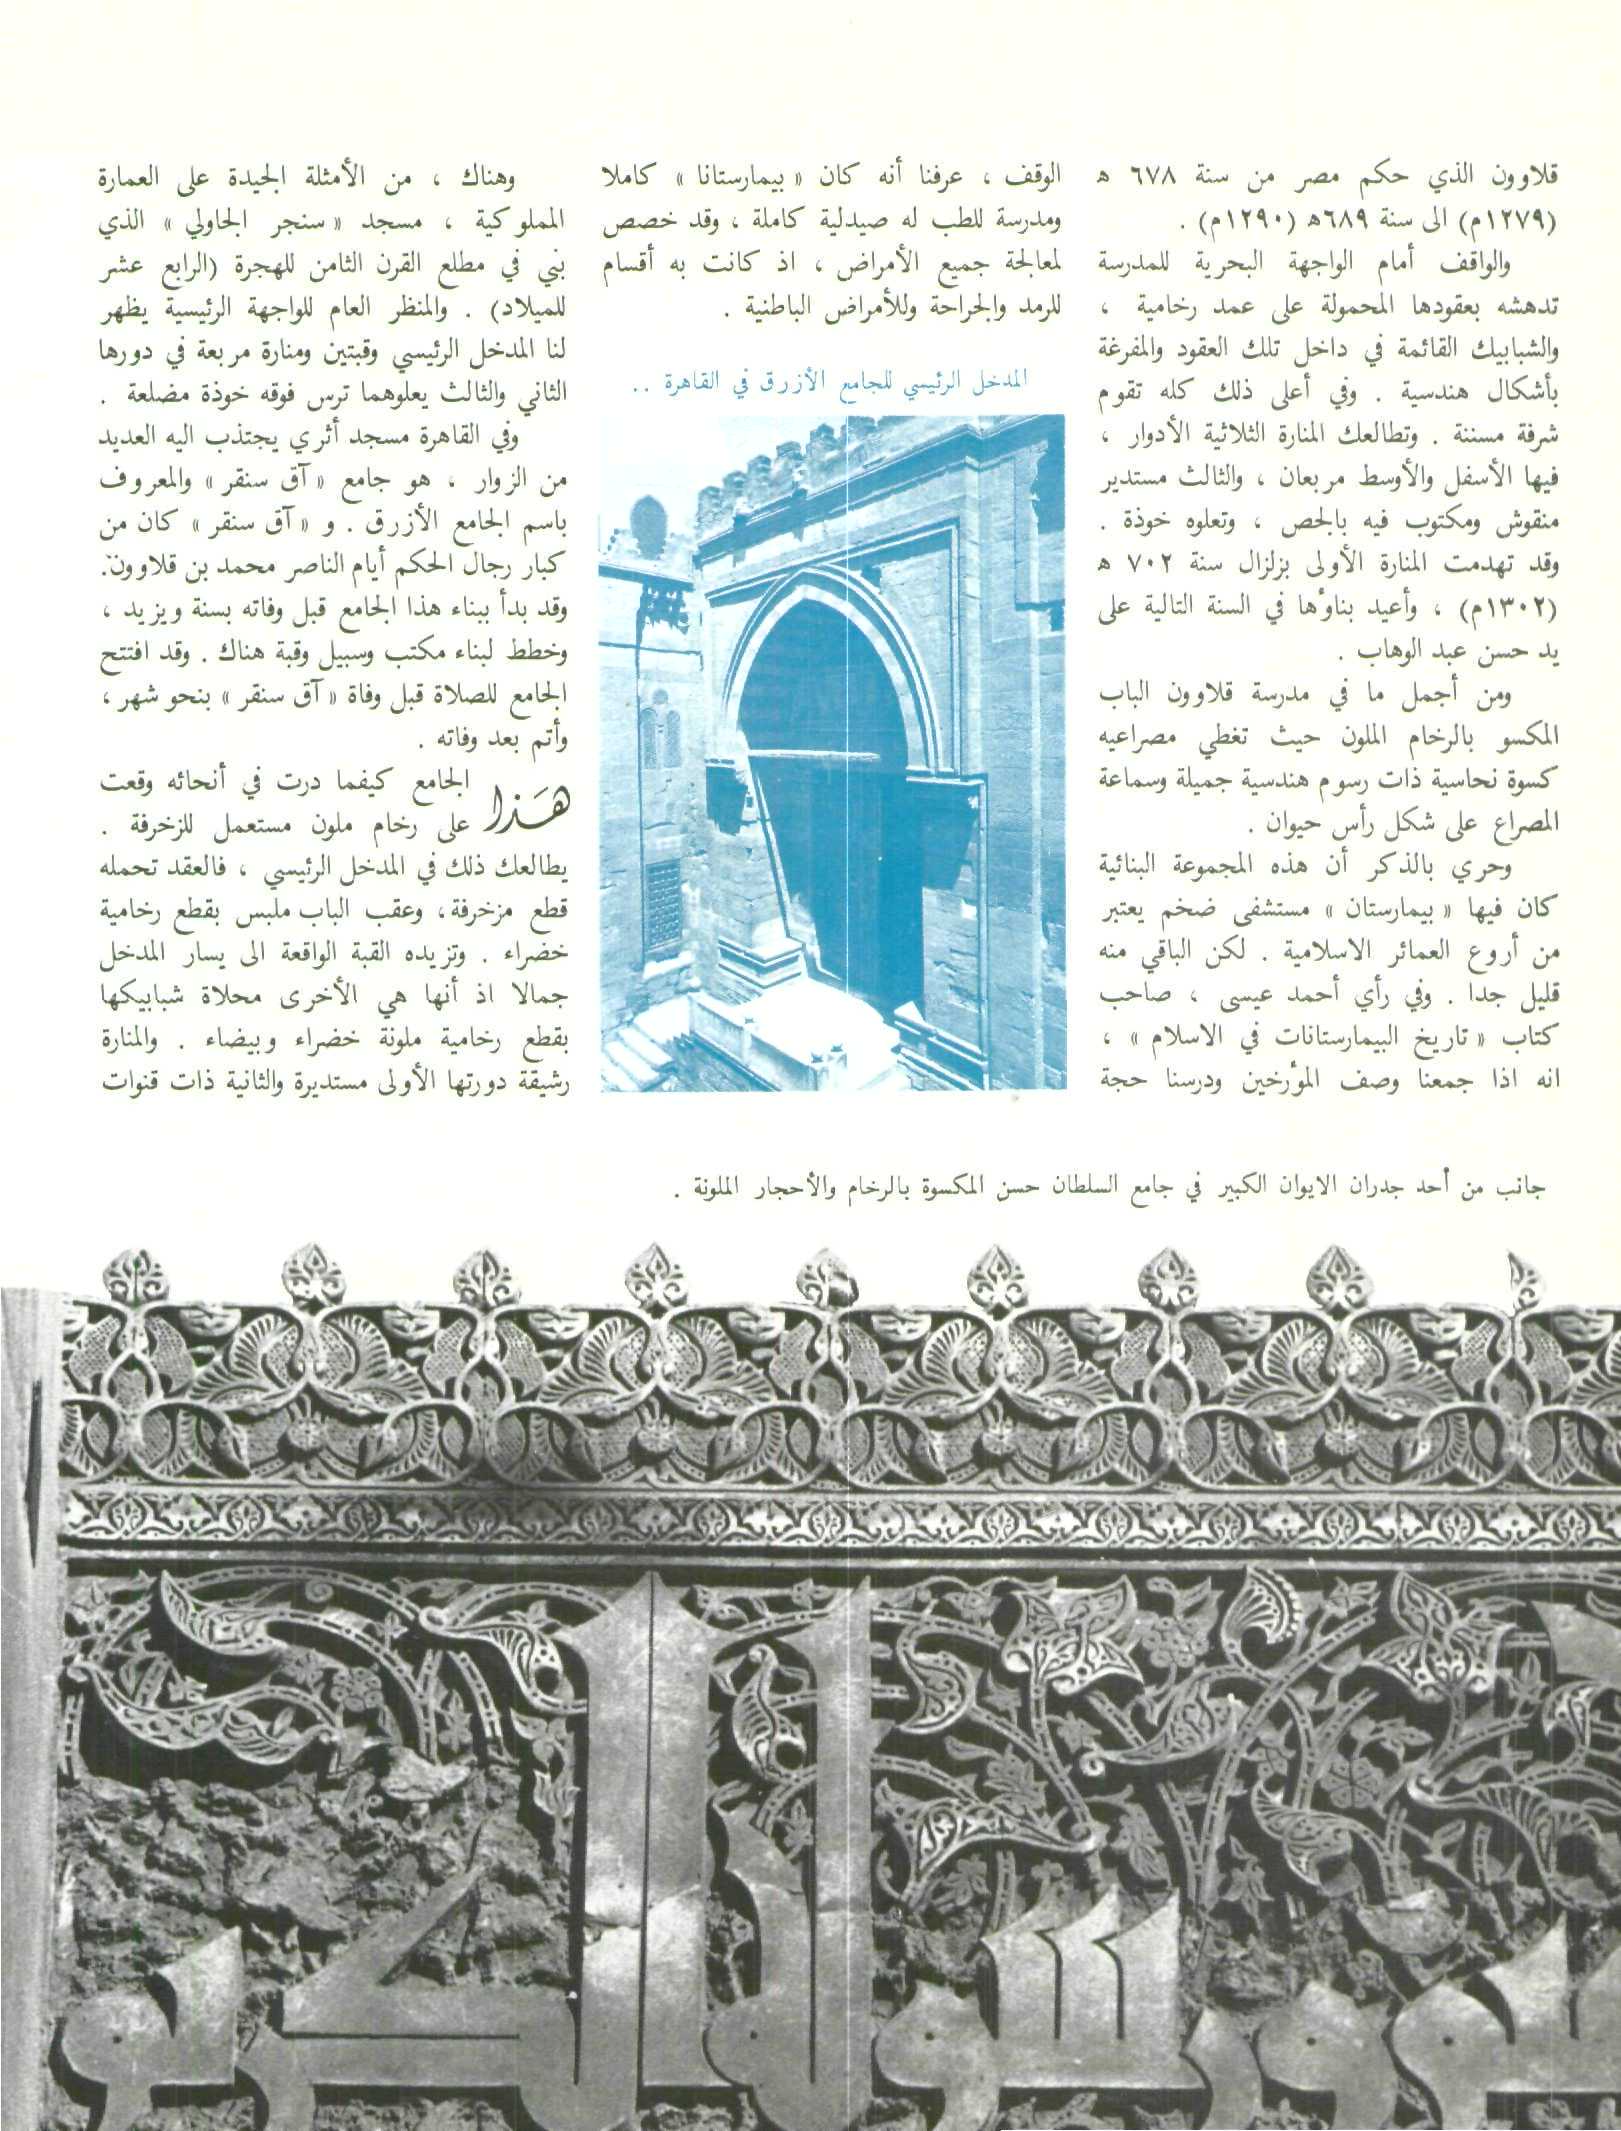 قلاوون الذي حكم مصر من سنة ٦٧٨ ه
(١٢٧٩م) الى سنة ٦٨٩ه (١٢٩٠م) .
والواقف أمام الواجهة البحرية للمدرسة
تدهشه بعقودها المحمولة على عمد رخامية ،
والشبابيك القائمة في داخل تلك العقود والمفرغة
بأشكال هندسية . وفي أعلى ذلك كله تقوم
شرفة مسننة . وتطالعك المنارة الثلاثية الأدوار ،
فيها الأسفل والأوسط مربعان ، والثالث مستدير
منقوش ومكتوب فيه بالجص ، وتعلوه خوذة .
وقد تهدمت المنارة الأولى بزلزال سنة ٧٠٢ ه
(١٣٠٢م) ، وأعيد بناؤها في السنة التالية على
يد حسن عبد الوهاب .
ومن أجمل ما في مدرسة قلاوون الباب
المكسو بالرخام الملون حيث تغطي مصراعيه
كسوة نحاسية ذات رسوم هندسية جميلة وسماعة
المصراع على شكل رأس حيوان .
وحري بالذكر أن هذه المجموعة البنائية
كان فيها « بيمارستان » مستشفى ضخم يعتبر
من أروع العمائر الاسلامية . لكن الباقي منه
قليل جدا . وفي رأي أحمد عيسى ، صاحب
كتاب « تاريخ البيمارستانات في الاسلام » ،
انه اذا جمعنا وصف المؤرخين ودرسنا حجة
الوقف ، عرفنا أنه كان « بيمارستانا » كاملا
ومدرسة للطب له صيدلية كاملة ، وقد خصص
لمعالجة جميع الأمراض ، اذ كانت به أقسام
للرمد والجراحة وللأمراض الباطنية .
المدخل الرئيسي للجامع الأزرق في القاهرة ..
وهناك ، من الأمثلة الجيدة على العمارة
المملوكية ، مسجد « سنجر الجاولي » الذي
بني في مطلع القرن الثامن للهجرة (الرابع عشر
للميلاد) . والمنظر العام للواجهة الرئيسية يظهر
لنا المدخل الرئيسي وقبتين ومنارة مربعة في دورها
الثاني والثالث يعلوهما ترس فوقه خوذة مضلعة .
وفي القاهرة مسجد أثري يجتذب اليه العديد
من الزوار ، هو جامع « آق سنقر » والمعروف
باسم الجامع الأزرق . و « آق سنقر » كان من
كبار رجال الحكم أيام الناصر محمد بن قلاوون.
وقد بدأ ببناء هذا الجامع قبل وفاته بسنة ويزيد ،
وخطط لبناء مكتب وسبيل وقبة هناك . وقد افتتح
الجامع للصلاة قبل وفاة « آق سنقر » بنحو شهر ،
وأتم بعد وفاته .
هَذا الجامع كيفما درت في أنحائه وقعت
على رخام ملون مستعمل للزخرفة .
يطالعك ذلك في المدخل الرئيسي ، فالعقد تحمله
قطع مزخرفة، وعقب الباب ملبس بقطع رخامية
خضراء . وتزيده القبة الواقعة الى يسار المدخل
جمالا اذ أنها هي الأخرى محلاة شبابيكها
بقطع رخامية ملونة خضراء وبيضاء . والمنارة
رشيقة دورتها الأولى مستديرة والثانية ذات قنوات
جانب من أحد جدران الايوان الكبير في جامع السلطان حسن المكسوة بالرخام والأحجار الملونة .